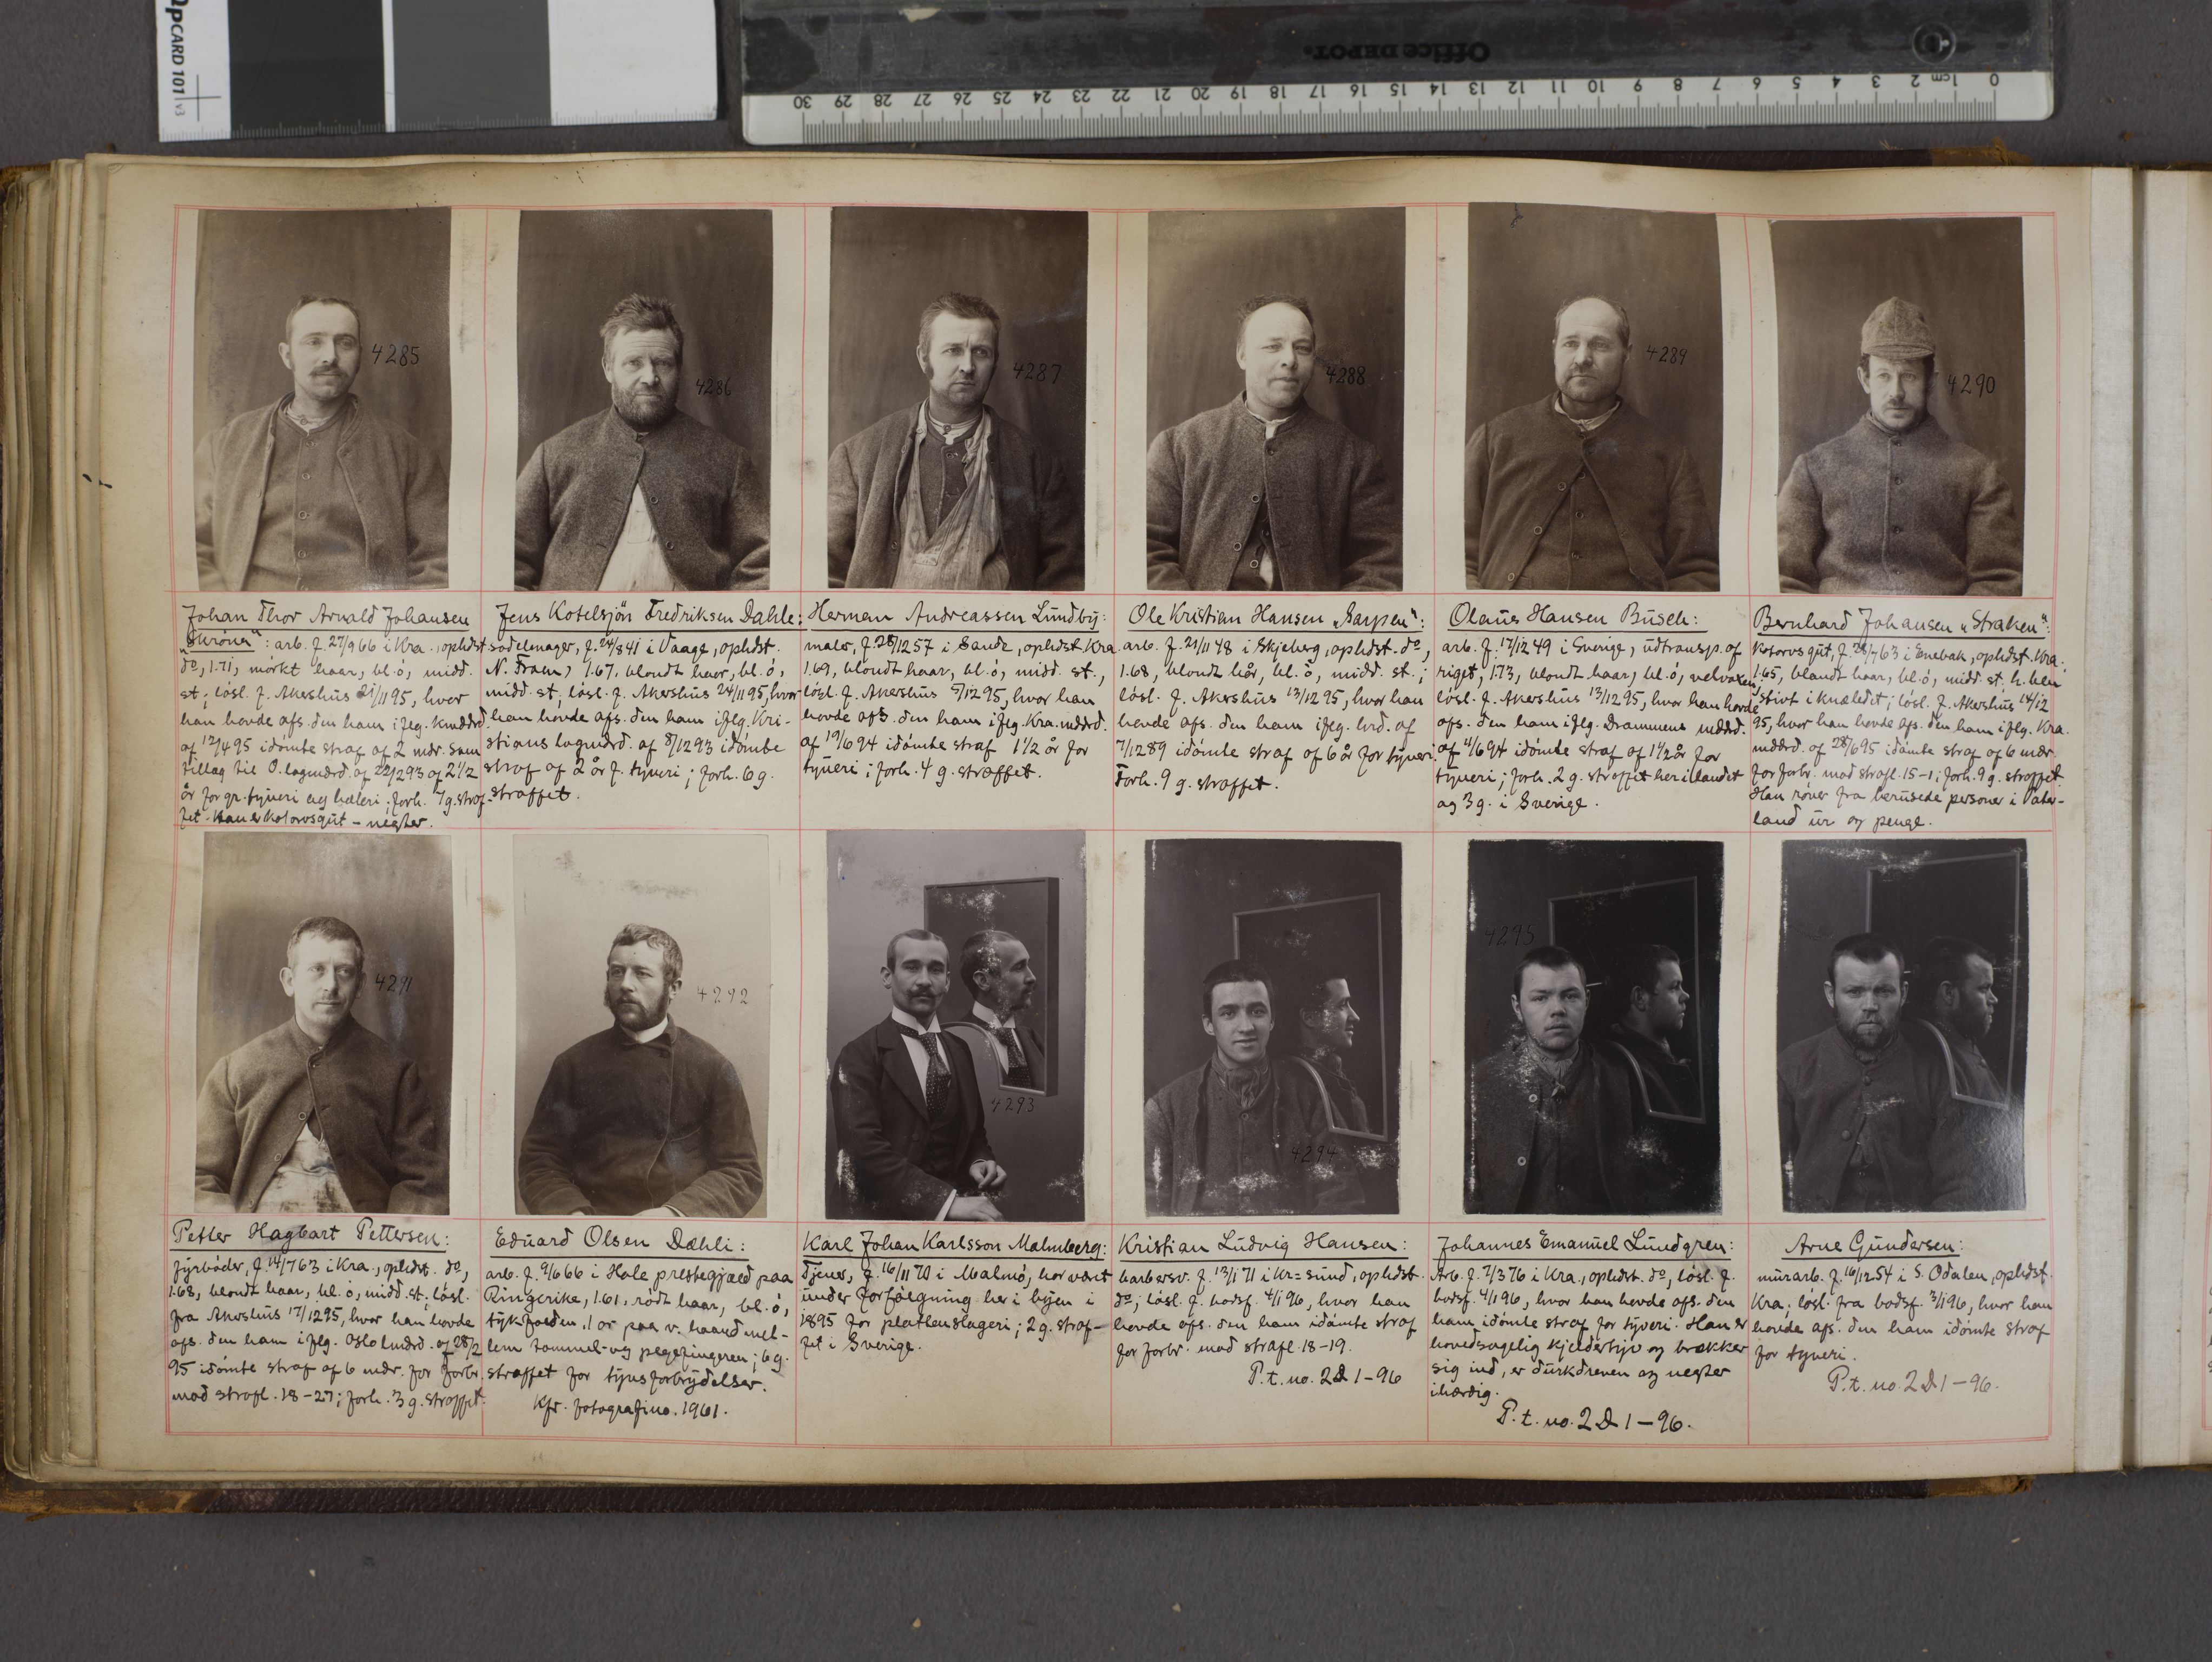 QpCARD 101 v3
Office DEPOT
30 29 28 27 26 25 24 23 22 21 20 19 18 17 16 15 14 13 12 11 10 9 8 7 6 5 4 3 2 1cm 0
4285
4286
4287
4288
4289
4290
Johan Thor Arnald Johansen
"Skröna": arb. f. 27/9 66 i Kra., ophdst
do, 1.71, mörkt haar, bl. ö, midd.
st; lösl. f. Akershus 21/11 95, hvor
han havde afs. den ham iflg. Kmddrd.
af 12/4 95 idömte straf af 2 mdr. som
tillæg til O. lagmdrd. af 22/2 93 af 2 1/2
år for gr. tyveri og hæleri; forh. 7 g. straf-
fet. Han er kolorosgut - negter.
Jens Kotelsjön Fredriksen Dahle:
sadelmager, f. 24/8 41 i Vaage, ophdst.
N. Fram, 1.67, blondt haar, bl. ö,
midd. st, lösl. f. Akershus 24/11 95, hvor
han havde afs. den ham iflg. Kri-
stians lagmdrd. af 8/12 93 idömte
straf af 2 år f. tyveri; forh. 6 g.
straffet.
Herman Andreassen Lundby:
maler, f. 28/12 57 i Sande, ophdst. Kra
1.69, blondt haar, bl. ö, midd. st.,
lösl. f. Akershus 5/12 95, hvor han
havde afs. den ham iflg. Kra. mddrd.
af 19/6 94 idömte straf 1 1/2 år for
tyveri; forh. 4 g. straffet.
Ole Kristian Hansen "Sarpen":
arb. f. 21/11 48 i Skjeberg, ophdst. do,
1.68, blondt hår, bl. ö, midd. st.;
lösl. f. Akershus 13/12 95, hvor han
havde afs. den ham iflg. hrd. af
7/12 89 idömte straf af 6 år for tyveri.
Forh. 9 g. straffet.
Olaus Hansen Busch:
arb. f. 17/12 49 i Sverige, udtransp. af
riget, 1.73, blondt haar, bl. ö, velvoxen;
lösl. f. Akershus 13/12 95, hvor han havde
afs. den ham iflg. Drammens mddrd.
af 4/6 94 idömte straf af 1 1/2 år for
tyveri; forh. 2 g. straffet her i landet
og 3 g. i Sverige.
Bernhard Johansen "Straken":
Kolorosgut, f. 28/7 63 i Enebak, ophdst. Kra.
1.65, blondt haar, bl. ö, midd. st. h. ben
stivt i knæledet; lösl. f. Akershus 14/12
95, hvor han havde afs. den ham iflg. Kra.
mddrd. af 28/6 95 idömte straf af 6 mdr.
for forbr. mod strafl. 15-1; forh. 9 g. straffet.
Han röver fra berusede personer i Vater-
land ur og penge.
4291
4292
4293
4294
4295
Petter Hagbart Pettersen:
fyrböder, f. 14/7 63 i Kra., ophdst. do,
1.68, blondt haar, bl. ö, midd. st; lösl.
fra Akershus 17/12 95, hvor han havde
afs. den ham iflg. Oslo lmdrd. af 28/2
95 idömte straf af 6 mdr. for forbr.
mod strafl. 18-27; forh. 3 g. straffet.
Eduard Olsen Dæhli:
arb. f. 9/6 66 i Hole prestegjæld paa
Ringerike, 1.61, rödt haar, bl. ö,
tykfalden, 1 ar paa v. haand mel-
lem tommel- og pegefingeren; 6 g.
straffet for tyvsforbrydelser.
Kfr. fotografi no. 1961.
Karl Johan Karlsson Malmberg:
Tjener, f. 16/11 70 i Malmö, har vært
under forfölgning her i byen i
1895 for plattenslageri; 2 g. straf-
fet i Sverige.
Kristian Ludvig Hansen:
barbersv. f. 13/1 71 i Kr=sund, ophdst.
do; lösl. f. bodsf. 4/1 96, hvor han
havde afs. den ham idömte straf
for forbr. mod strafl. 18-19.
P. t. no. 2 D 1-96
Johannes Emanuel Lundgren:
Arb. f. 7/3 76 i Kra., ophdst. do, lösl. f.
bodsf. 4/1 96, hvor han havde afs. den
ham idömte straf for tyveri. Han er
hovedsagelig kjeldertyv og brækker
sig ind, er durkdreven og negter
ihærdig.
P. t. no. 2 D 1-96.
Arne Gundersen:
murarb. f. 16/12 54 i S. Odalen, ophdst.
Kra; lösl. fra bodsf. 3/1 96, hvor han
havde afs. den ham idömte straf
for tyveri.
P. t. no. 2 D 1-96.